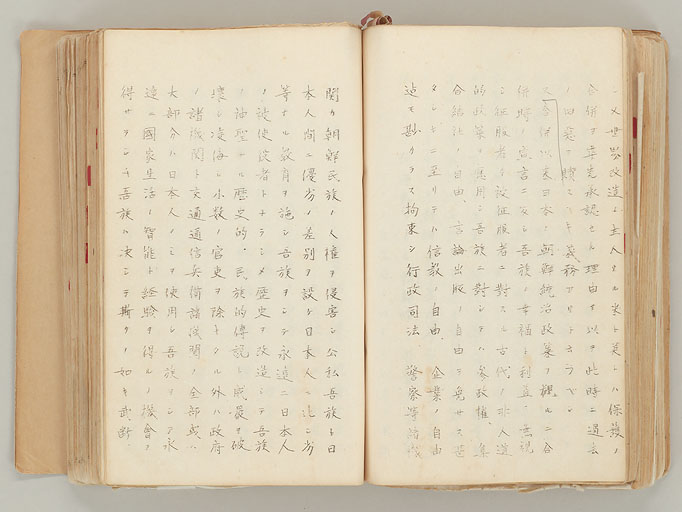 シ又世界改造ノ主人タル米ト英トハ保護ノ
合併ヲ率先承認セル理由ヲ以テ此時ニ過去
ノ旧悪ヲ贖フベキ義務アリト云フベシ
又合併以来日本ノ朝鮮統治政策ヲ観ルニ合
併時ノ宣言ニ反シ吾族ノ幸福ト利益ヲ無視
シ征服者ガ被征服者ニ對スル古代ノ非人道
的政策ヲ應用シ吾族ニ對シテハ参政權、集
会結社ノ自由、言論出版ノ自由ヲ免サス甚
タシキニ至リテハ信教ノ自由、企業ノ自由
迠モ尠カラス拘束シ行政司法警察等諸機
関カ朝鮮民族ノ人權ヲ侵害シ公私吾族ト日
本人間ニ優劣ノ差別ヲ設ケ日本人ニ比シ劣
等ナル教育ヲ施シ吾族ヲシテ永遠ニ日本人
ノ被使役者トナラシメ歴史ヲ改造シテ吾族
ノ神聖ナル歴史的、民族的傳説ト威嚴ヲ破
壊シ凌侮シ小数ノ官吏ヲ除キタル外ハ政府
ノ諸機関ト交通通信兵備諸機関ノ全部或ハ
大部分ハ日本人ノミヲ使用シ吾族ヲシテ永
遠ニ國家生活ノ智能ト経験ヲ得ルノ機會ヲ
得サラシム吾族ハ决シテ斯クノ如キ武断、